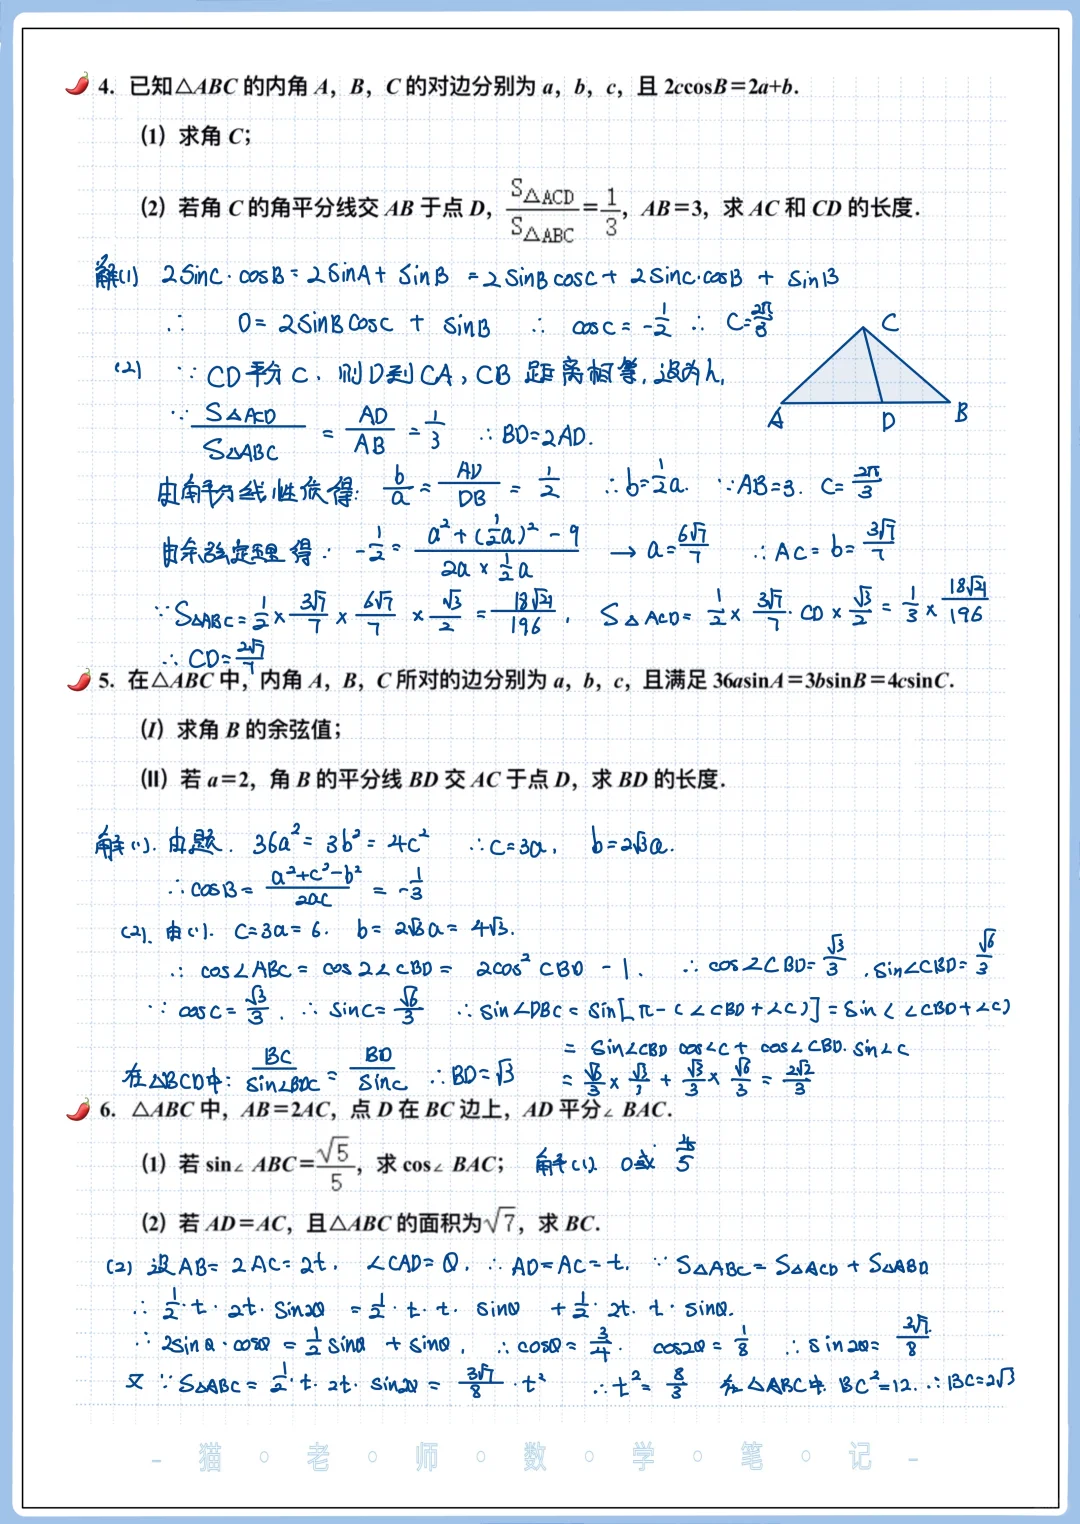 4. 已知△ABC 的内角 A，B，C 的对边分别为 a，b，c，且 2ccosB＝2a+b.
(1) 求角 C；
(2) 若角 C 的角平分线交 AB 于点 D，S△ACD/S△ABC＝1/3，AB＝3，求 AC 和 CD 的长度.
解(1) 2sinC·cosB = 2sinA + sinB = 2sinBcosC + 2sinC·cosB + sinB
∴ 0 = 2sinBcosC + sinB ∴ cosC = -1/2 ∴ C = 2π/3
C
A D B
(2) ∵ CD平分C，则D到CA，CB 距离相等，设为h，
∵ S△ACD/S△ABC = AD/AB = 1/3 ∴ BD=2AD.
由角平分线性质得: b/a = AD/DB = 1/2 ∴ b=1/2a. ∵AB=3. C=2π/3
由余弦定理得: -1/2 = (a²+(1/2a)²-9)/(2a×1/2a) → a=6√7/7 ∴ AC=b=3√7/7
∵ S△ABC=1/2×3√7/7×6√7/7×√3/2=18√21/196, S△ACD=1/2×3√7/7·CD×√3/2=1/3×18√21/196
∴ CD=2√7/7
5. 在△ABC 中，内角 A，B，C 所对的边分别为 a，b，c，且满足 36asinA＝3bsinB＝4csinC.
(I) 求角 B 的余弦值；
(II) 若 a＝2，角 B 的平分线 BD 交 AC 于点 D，求 BD 的长度.
解(1). 由题. 36a²=3b²=4c² ∴c=3a, b=2√3a.
∴cosB=(a²+c²-b²)/2ac = -1/3
(2). 由(1). c=3a=6. b=2√3a=4√3.
∴ cos∠ABC = cos2∠CBD = 2cos²CBD -1. ∴ cos∠CBD=√3/3, sin∠CBD=√6/3
∵ cosC=√3/3. ∴ sinC=√6/3 ∴ sin∠DBC=sin[π-(∠CBD+∠C)]=sin(∠CBD+∠C)
= sin∠CBD cos∠C + cos∠CBD·sin∠C
在△BCD中: BC/sin∠BDC = BD/sinC ∴BD=√3 = √6/3×√3/3+√3/3×√6/3=2√2/3
6. △ABC 中，AB＝2AC，点 D 在 BC 边上，AD 平分∠BAC.
(1) 若 sin∠ABC＝√5/5，求 cos∠BAC； 解(1) 0或 4/5
(2) 若 AD＝AC，且△ABC 的面积为√7，求 BC.
(2) 设AB=2AC=2t, ∠CAD=θ, ∴AD=AC=t. ∵ S△ABC=S△ACD+S△ABD
∴ 1/2·t·2t·sin2θ = 1/2·t·t·sinθ + 1/2·2t·t·sinθ.
∴ 2sinθ·cosθ = 1/2sinθ + sinθ, ∴ cosθ=3/4. cos2θ=1/8 ∴ sin2θ=3√7/8.
又∵S△ABC=1/2·t·2t·sin2θ=3√7/8·t² ∴t²=8/3 在△ABC中. BC²=12. ∴BC=2√3
- 猫 · 老 · 师 · 数 · 学 · 笔 · 记 -